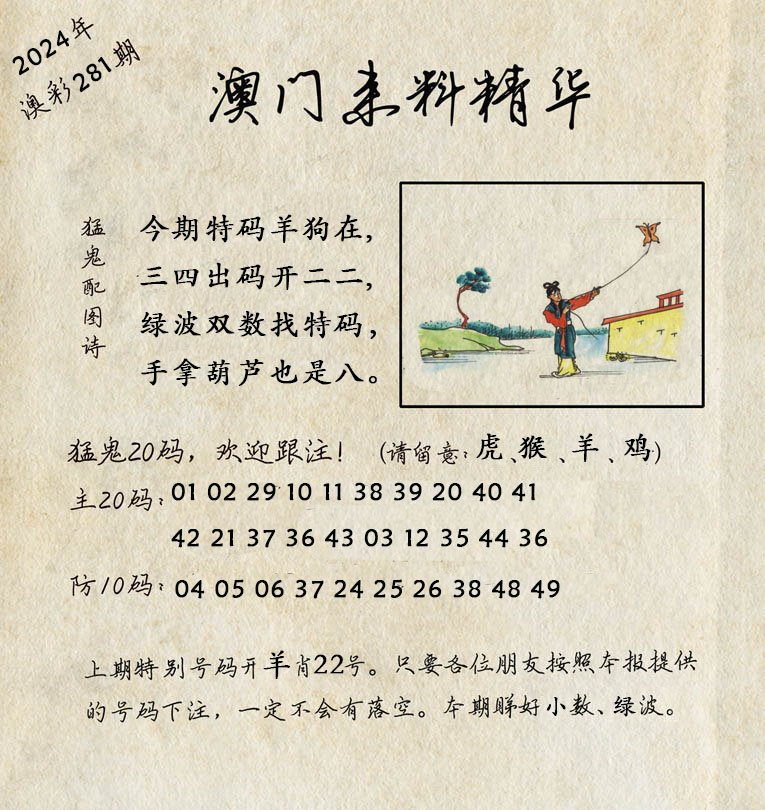 2024年
澳彩281期
澳门来料精华
猛鬼配图诗
今期特码羊狗在，
三四出码开二二，
绿波双数找特码，
手拿葫芦也是八。
猛鬼20码，欢迎跟注！（请留意：虎、猴、羊、鸡）
主20码：01 02 29 10 11 38 39 20 40 41
42 21 37 36 43 03 12 35 44 36
防10码：04 05 06 37 24 25 26 38 48 49
上期特别号码开羊肖22号。只要各位朋友按照本报提供
的号码下注，一定不会有落空。本期睇好小数、绿波。